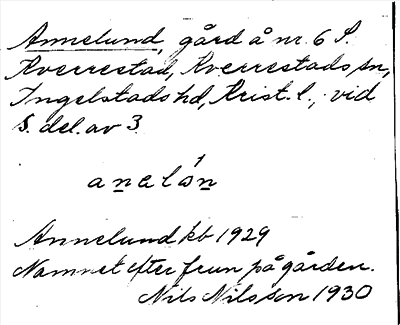 Annelund, gård å nr. 6 S.
Kverrestad, Kverrestads sn,
Ingelstads hd, Krist. l., vid
S. del. av 3.
anelón
Annelund kb 1929
Namnet efter frun på gården.
Nils Nilsson 1930